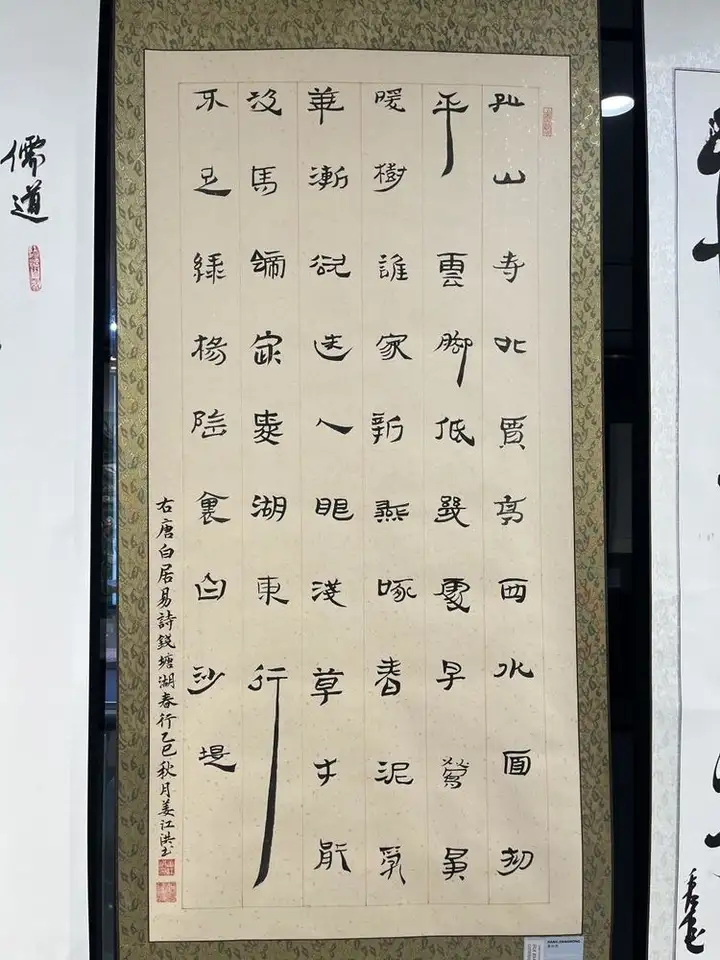 孤山寺北賈亭西水面初
平雲脚低幾處早鶯爭
暖樹誰家新燕啄春泥亂
華漸欲迷人眼淺草才能
没馬蹄最愛湖東行
不足綠楊陰裏白沙堤
右唐白居易詩錢塘湖春行乙巳秋月姜江洪书
儒道